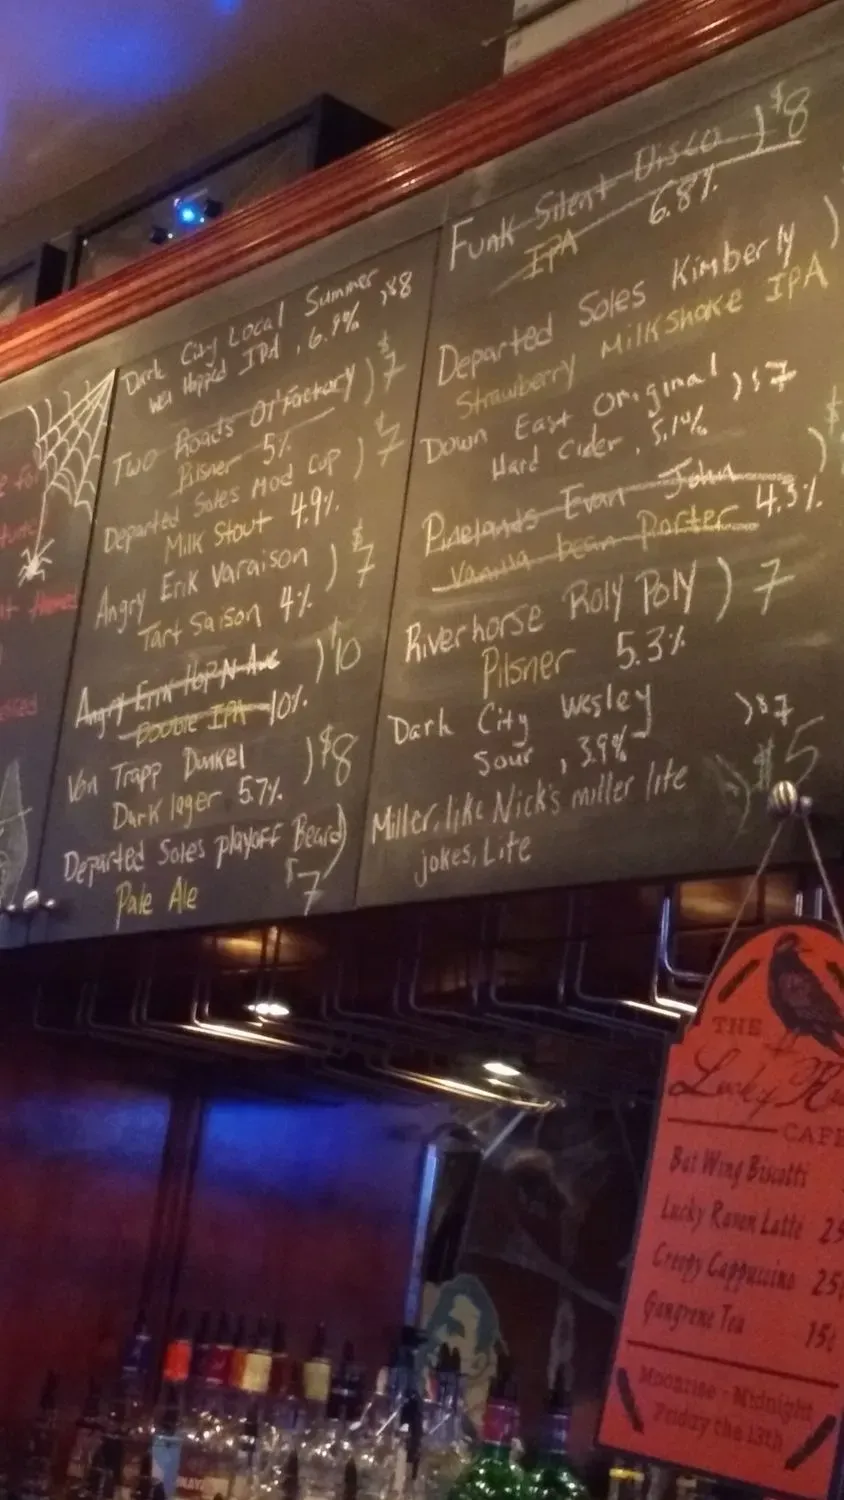 Dark City Local Summer
Wet Hopped IPA, 6.9% ,$8
Two Roads Ol'Factory ) $7
Pilsner 5%
Departed Soles Mod Cup ) $7
Milk Stout 4.9%
Angry Erik Varaison ) $7
Tart Saison 4%
Angry Erik Hop N Ave ) $10
Double IPA 10%
Von Trapp Dunkel ) $8
Dark lager 5.7%
Departed Soles Playoff Beard)
Pale Ale $7
Funk Silent Disco ) $8
IPA 6.8%
Departed Soles Kimberly )
Strawberry Milkshake IPA
Down East Original ) $7
Hard Cider, 5.1%
Pinelands Evan John ) $
Vanilla bean Porter 4.3%
Riverhorse Roly Poly ) 7
Pilsner 5.3%
Dark City Wesley ) $7
Sour, 3.9%
Miller, like Nick's miller lite ) $5
jokes, Lite
THE
Lucky
CAFE
Bat Wing Biscotti
Lucky Raven Latte 25
Creepy Cappuccino 25¢
Gangrene Tea 15¢
Moonrise - Midnight
Friday the 13th